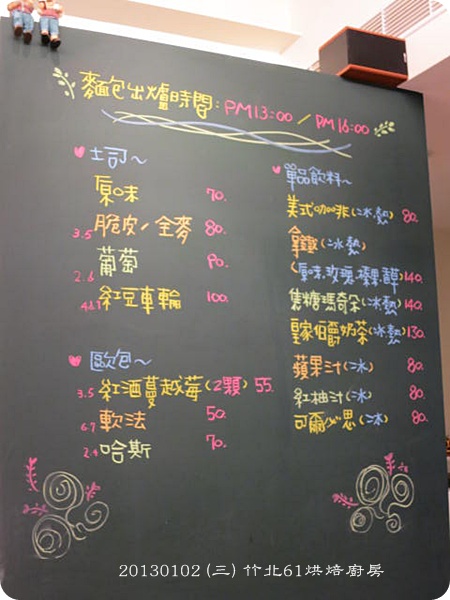 麵包出爐時間：PM13:00 / PM16:00
土司～
原味 70.
3.5 脆皮/全麥 80.
2.6 葡萄 90.
4.6.7 紅豆車輪 100.
歐包～
3.5 紅酒蔓越莓(2顆) 55.
6.7 軟法 50.
2.4 哈斯 70.
單品飲料～
美式咖啡(冰.熱) 80.
拿鐵(冰熱)
(原味.玫瑰.榛果. 140.
焦糖瑪奇朵(冰熱) 140.
皇家伯爵奶茶(冰熱) 130.
蘋果汁(冰) 80.
紅柚汁(冰) 80.
可爾必思(冰) 80.
20130102 (三) 竹北61烘焙廚房